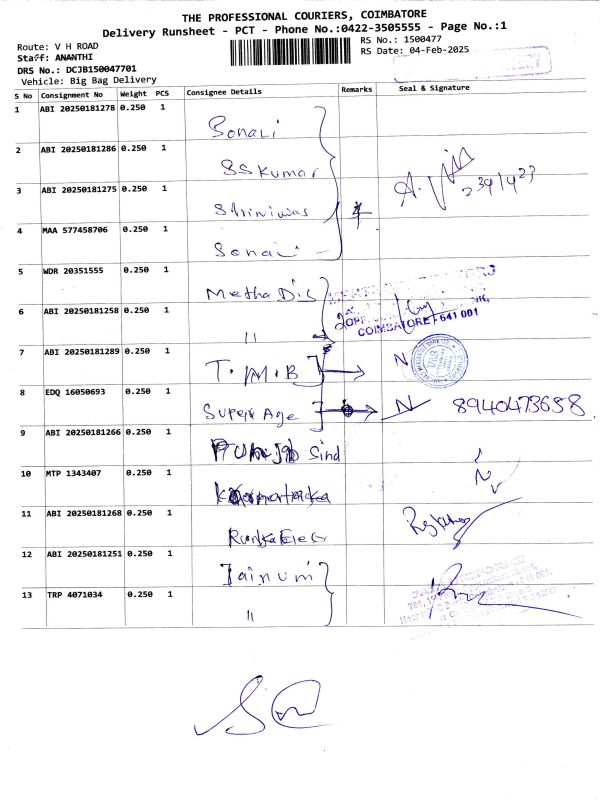 THE PROFESSIONAL COURIERS, COIMBATORE
Delivery Runsheet - PCT - Phone No.:0422-3505555 - Page No.:1
Route: V H ROAD
RS No.: 1500477
Staff: ANANTHI
RS Date: 04-Feb-2025
DRS No.: DCJB150047701
Vehicle: Big Bag Delivery
S No Consignment No Weight PCS Consignee Details Remarks Seal & Signature
1 ABI 20250181278 0.250 1 Sonali
2 ABI 20250181286 0.250 1 S S Kumar
3 ABI 20250181275 0.250 1 Shriniwas
4 MAA 577458706 0.250 1 Sonali
5 WDR 20351555 0.250 1 Metha Dis
6 ABI 20250181258 0.250 1 "
COIMBATORE 641 001
7 ABI 20250181289 0.250 1 T. M. B N
8 EDQ 16050693 0.250 1 Super Age N 8940473658
9 ABI 20250181266 0.250 1 Punjab Sind
10 MTP 1343407 0.250 1 Karnartaka
11 ABI 20250181268 0.250 1
12 ABI 20250181251 0.250 1 Jainum
13 TRP 4071034 0.250 1 "